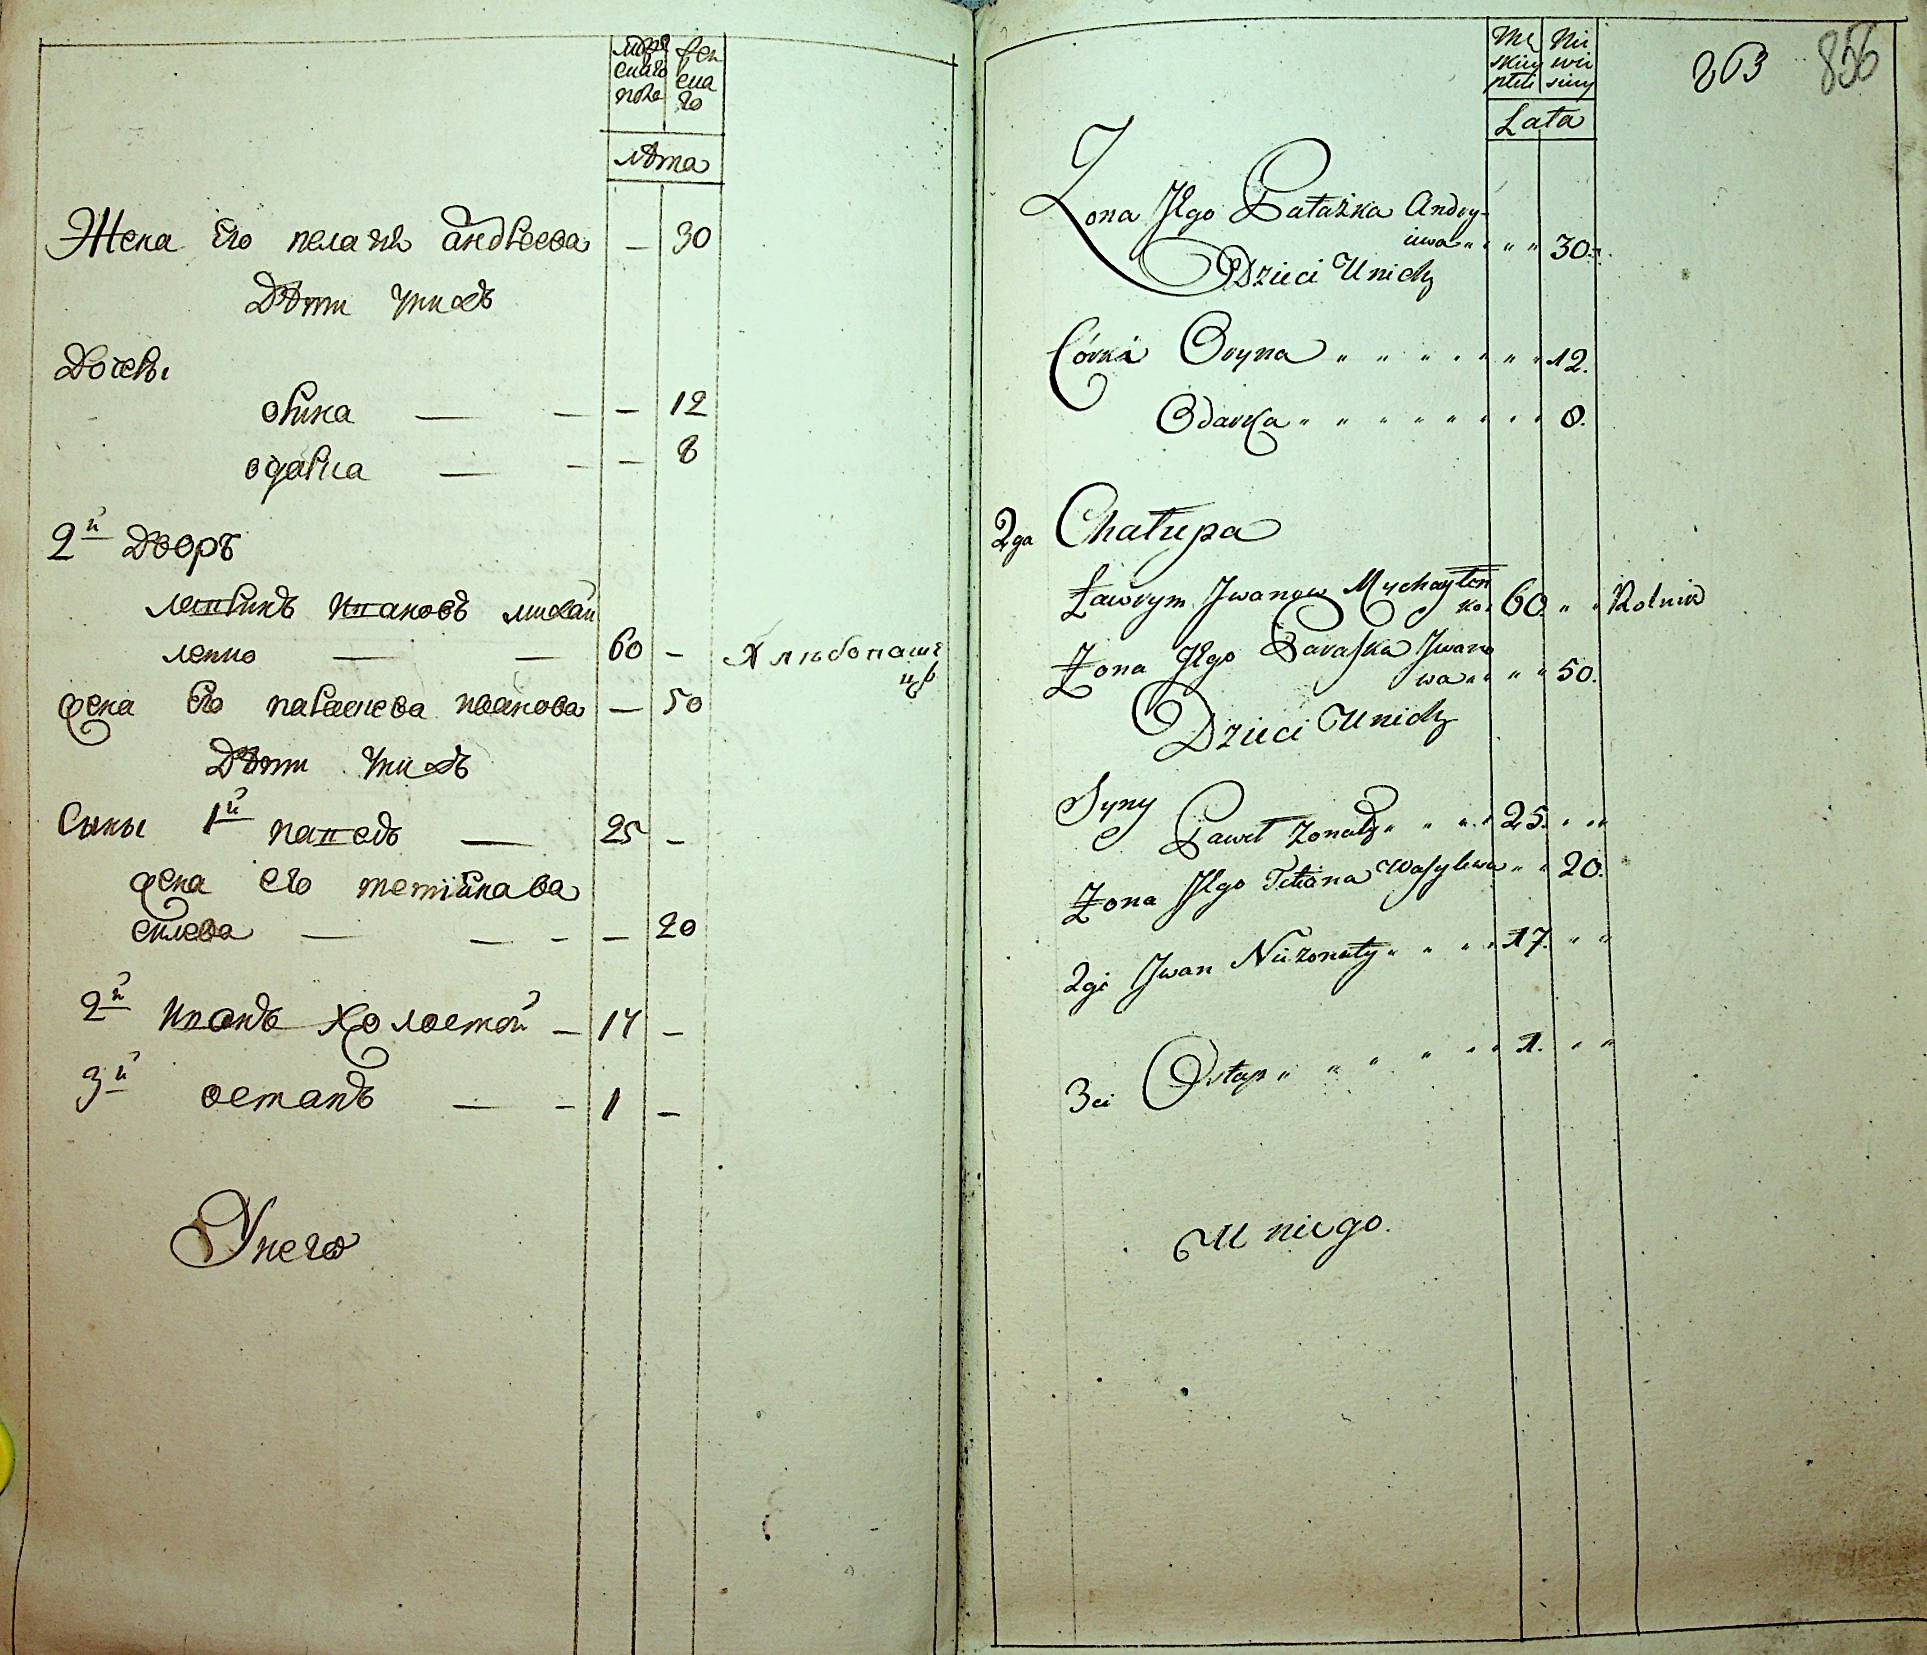 мужескаго пола
женскаго
лѣта
Жена Его пелагея андреева — 30
Дѣти ихъ
Дочери
орина — — — 12
одарка — — — 8
2й Дворъ
Ивановъ михай
ленко — — 60 —
Хлѣбопаше
цъ
жена Его параскева иванова — 50
Дѣти ихъ
Сыны 1й павелъ — 25 —
жена его тетіяна ва
силева — — — — 20
2й иванъ Холостой — 17 —
3й остапъ — — 1 —
У него
Mę Nie
skiey wie
płeci sciey
263 856
Lata
Zona Jego Pałażka Andry-
iewa 30.
Dzieci U nich
Córki Oryna 12.
Odarka 8.
2ga Chałupa
Ławrym Iwanow Mychayłen
ko 60. Rolnik
Zona Jego Paraska Iwano
wa 50.
Dzieci U nich
Syny
Paweł żonaty 25.
Zona Jego Tetiana Wasylewa 20.
2gi Iwan Nieżonaty 17.
3ci Ostap 1.
U niego.